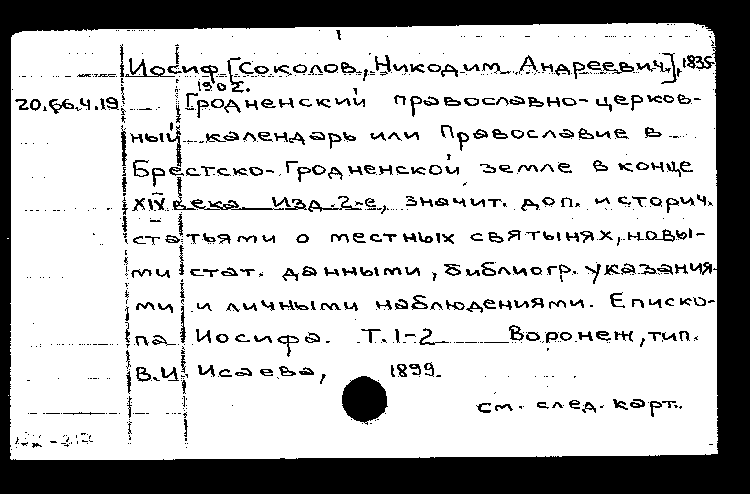 Иосиф [Соколов, Никодим Андреевич], 1835
1902.
20.66.4.19 Гродненский православно-церков-
ный календарь или Православие в
Брестско-Гродненской земле в конце
XIX века. Изд. 2-е, значит. доп. историч.
статьями о местных святынях, новы-
ми стат. данными, библиогр. указания-
ми и личными наблюдениями. Еписко-
па Иосифа. Т. 1-2 Воронеж, тип.
В.И. Исаева, 1899.
см. след. карт.